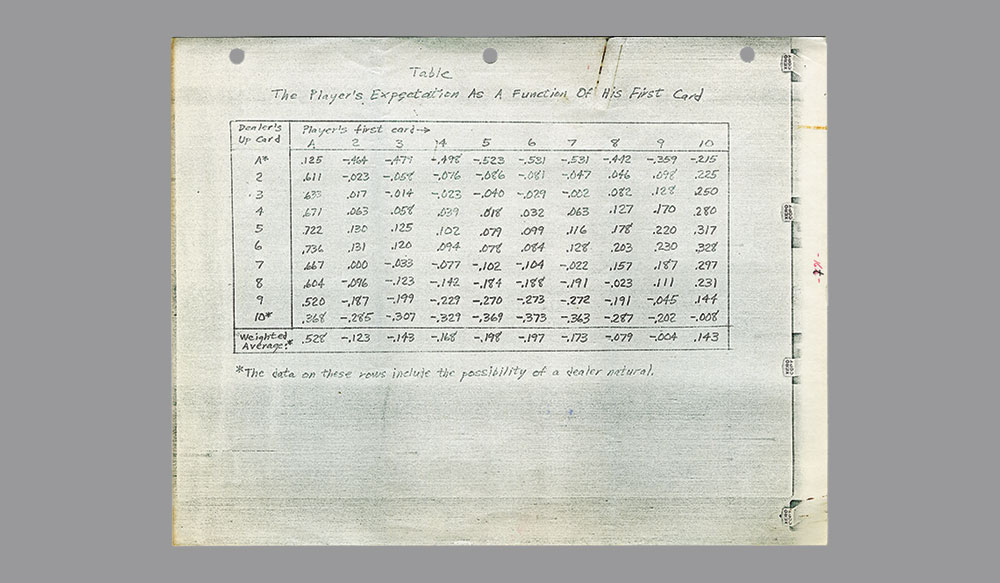 Table
The Player's Expectation As A Function Of His First Card
Dealer's Up Card Player's first card→
A 2 3 4 5 6 7 8 9 10
A* .125 -.464 -.479 -.498 -.523 -.531 -.531 -.442 -.359 -.215
2 .611 -.023 -.058 -.076 -.086 -.081 -.047 .046 .098 .225
3 .633 .017 -.014 -.023 -.040 -.029 -.002 .082 .128 .250
4 .671 .063 .058 .039 .018 .032 .063 .127 .170 .280
5 .722 .130 .125 .102 .079 .099 .116 .178 .220 .317
6 .736 .131 .120 .094 .078 .084 .128 .203 .230 .328
7 .667 .000 -.033 -.077 -.102 -.104 -.022 .157 .187 .297
8 .604 -.096 -.123 -.142 -.184 -.188 -.191 -.023 .111 .231
9 .520 -.187 -.199 -.229 -.270 -.273 -.272 -.191 -.045 .144
10* .368 -.285 -.307 -.329 -.369 -.373 -.363 -.287 -.202 -.008
Weighted Average:* .528 -.123 -.143 -.168 -.198 -.197 -.173 -.079 -.004 .143
*The data on these rows include the possibility of a dealer natural.
XERO COPY
XERO COPY
XERO COPY
XERO COPY